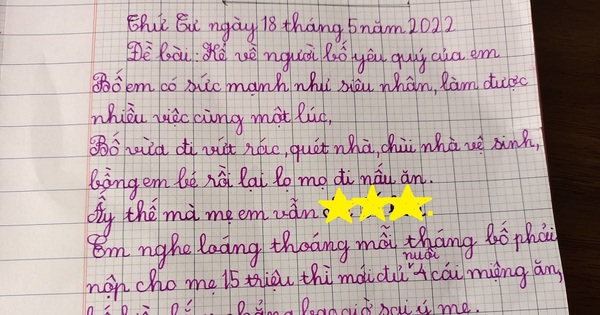 Thứ Tư ngày 18 tháng 5 năm 2022
Đề bài: Kể về người bố yêu quý của em
Bố em có sức mạnh như siêu nhân, làm được
nhiều việc cùng một lúc,
Bố vừa đi vứt rác, quét nhà, chùi nhà vệ sinh,
bồng em bé rồi lại lọ mọ đi nấu ăn.
Ấy thế mà mẹ em vẫn
Em nghe loáng thoáng mỗi tháng bố phải
nộp cho mẹ 15 triệu thì mới đủ nuôi 4 cái miệng ăn,
bao giờ sai ý mẹ.